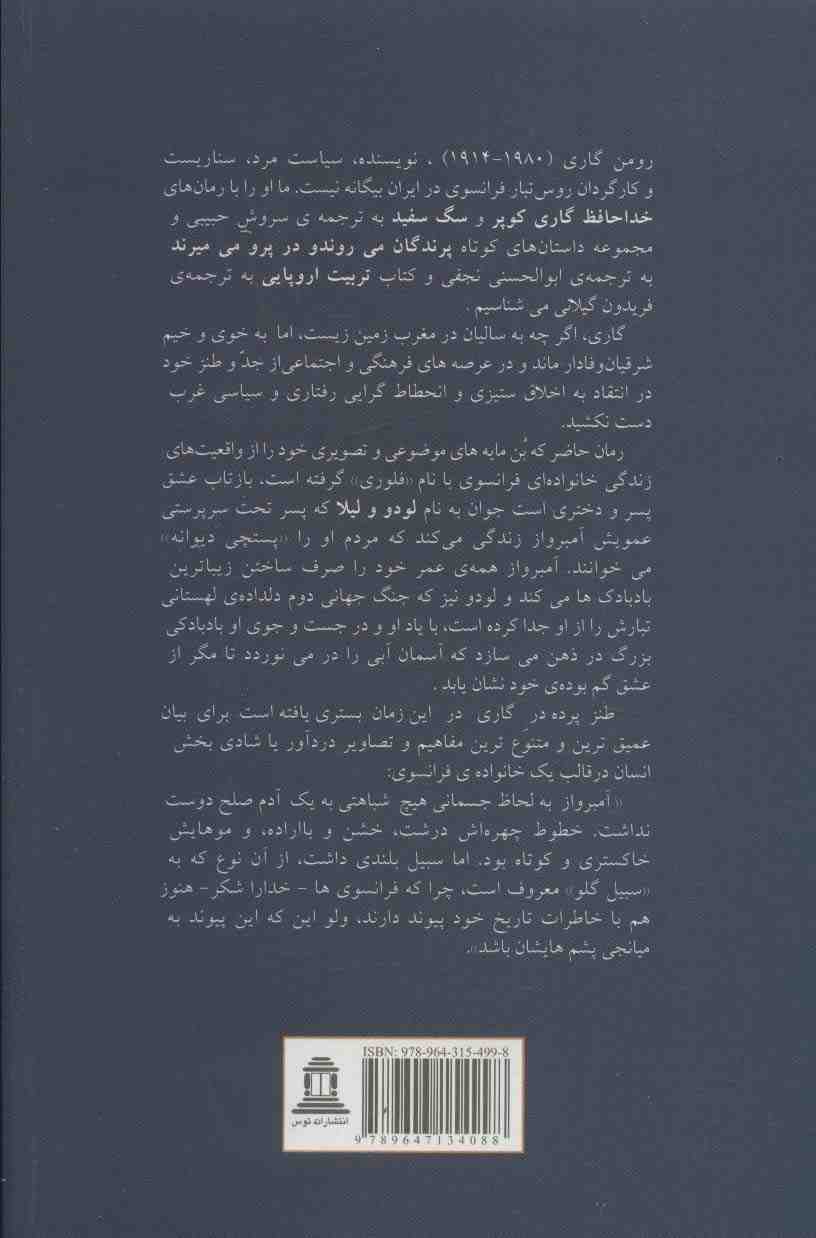 رومن گاری (۱۹۸۰-۱۹۱۴) ، نویسنده، سیاست مرد، سناریست
و کارگردان روس‌تبار فرانسوی در ایران بیگانه نیست. ما او را با رمان‌های
خداحافظ گاری کوپر و سگ سفید به ترجمه ی سروش حبیبی و
مجموعه داستان‌های کوتاه پرندگان می روندو در پرو می میرند
به ترجمه‌ی ابوالحسنی نجفی و کتاب تربیت اروپایی به ترجمه‌ی
فریدون گیلانی می شناسیم .
گاری، اگر چه به سالیان در مغرب زمین زیست، اما به خوی و خیم
شرقیان‌وفادار ماند و در عرصه های فرهنگی و اجتماعی‌از جدّ و طنز خود
در انتقاد به اخلاق ستیزی و انحطاط گرایی رفتاری و سیاسی غرب
دست نکشید.
رمان حاضر که بُن مایه های موضوعی و تصویری خود را از واقعیت‌های
زندگی خانواده‌ای فرانسوی با نام «فلوری» گرفته است، بازتاب عشق
پسر و دختری است جوان به نام لودو و لیلا که پسر تحت سرپرستی
عمویش آمبرواز زندگی می‌کند که مردم او را «پستچی دیوانه»
می خوانند. آمبرواز همه‌ی عمر خود را صرف ساختن زیباترین
بادبادک ها می کند و لودو نیز که جنگ جهانی دوم دلداده‌ی لهستانی
تبارش را از او جدا کرده است، با یاد او و در جست و جوی او بادبادکی
بزرگ در ذهن می سازد که آسمان آبی را در می نوردد تا مگر از
عشق گم بوده‌ی خود نشان یابد .
طنز پرده درِ گاری در این زمان بستری یافته است برای بیان
عمیق ترین و متنوّع ترین مفاهیم و تصاویر دردآور یا شادی بخش
انسان درقالب یک خانواده ی فرانسوی:
«آمبرواز به لحاظ جسمانی هیچ شباهتی به یک آدم صلح دوست
نداشت. خطوط چهره‌اش درشت، خشن و بااراده، و موهایش
خاکستری و کوتاه بود. اما سبیل بلندی داشت، از آن نوع که به
«سبیل گلو» معروف است، چرا که فرانسوی ها - خدارا شکر- هنوز
هم با خاطرات تاریخ خود پیوند دارند، ولو این که این پیوند به
میانجی پشم هایشان باشد».
ISBN: 978-964-315-499-8
انتشارات توس
9 789647 134088